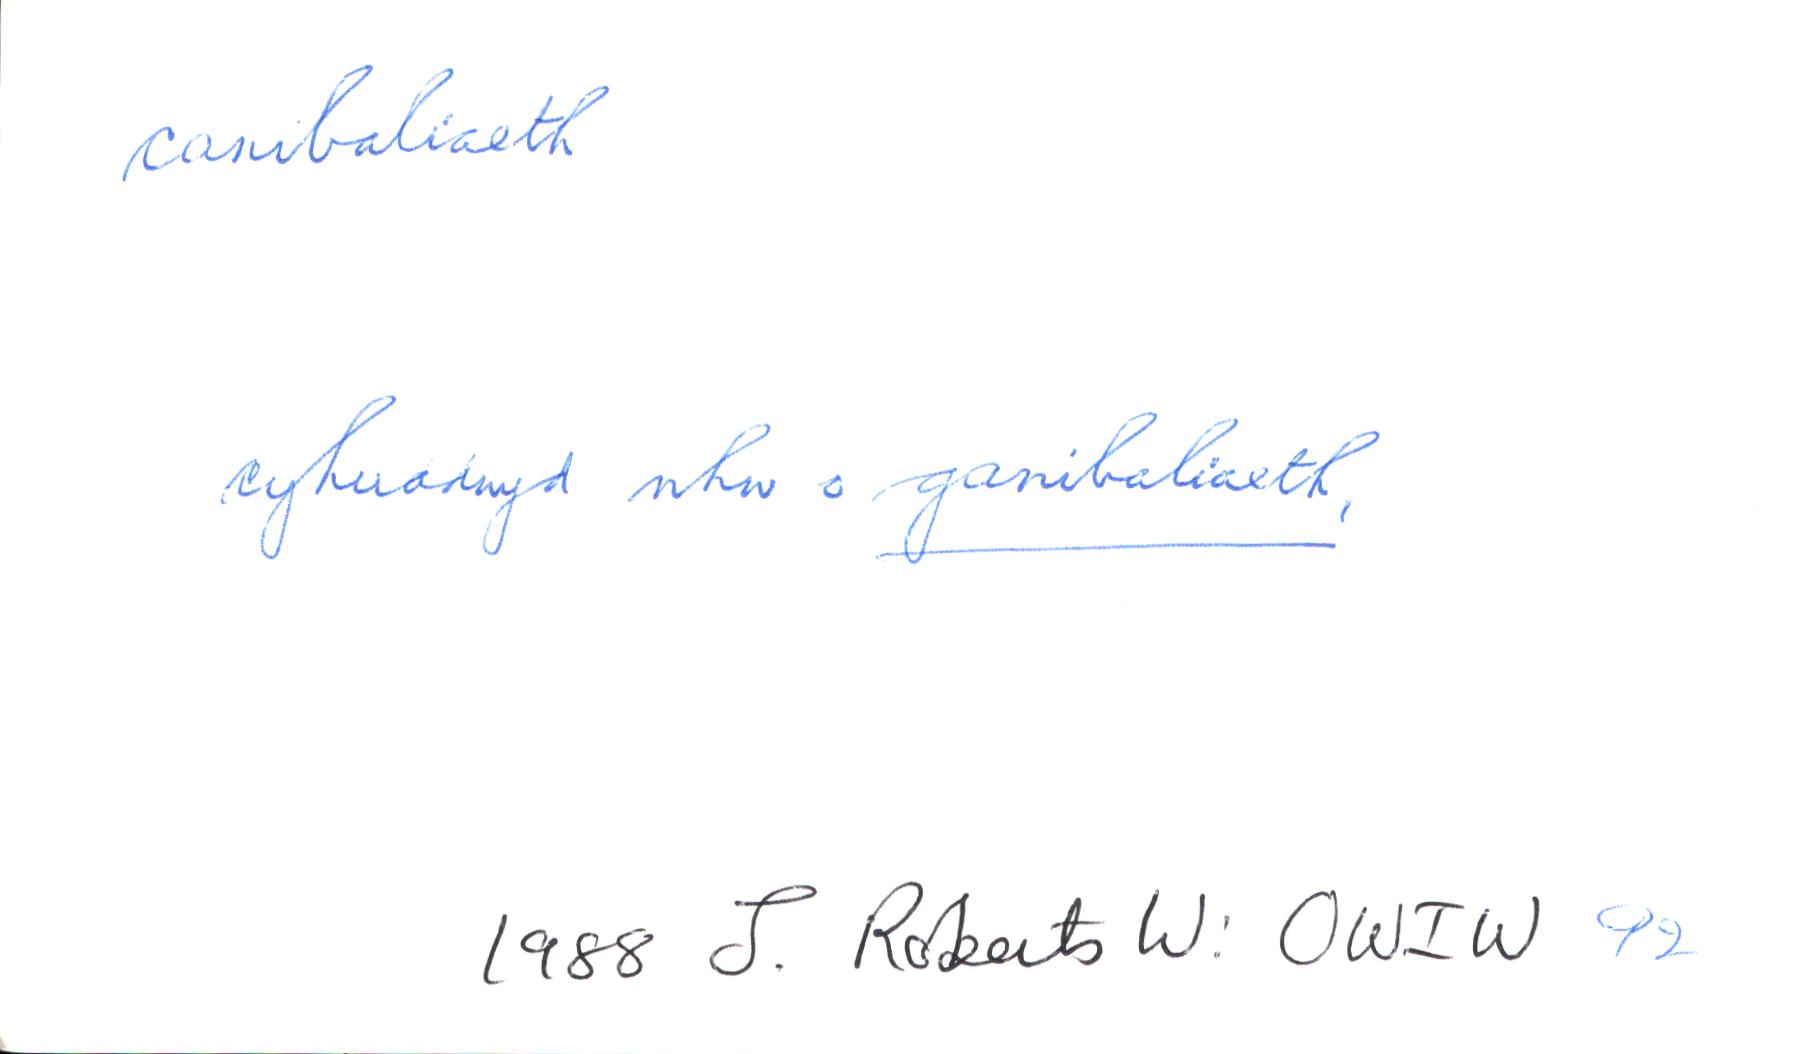 canibaliaeth
cyhuddwyd nhw o ganibaliaeth,
1988 J. Roberts W: OWIW 92